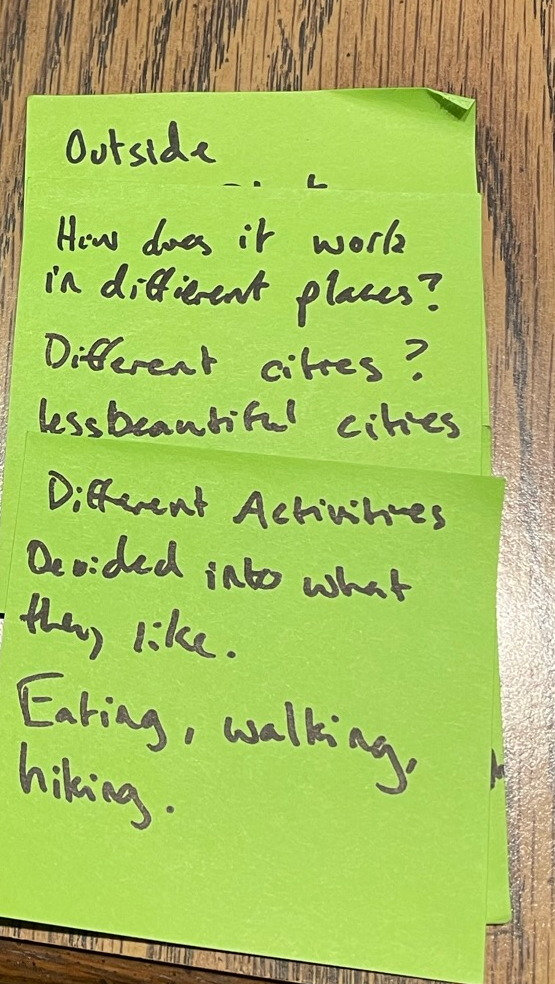 Outside
How does it work
in different places?
Different cities?
less beautiful cities
Different Activities
Devided into what
they like.
Eating, walking,
hiking.